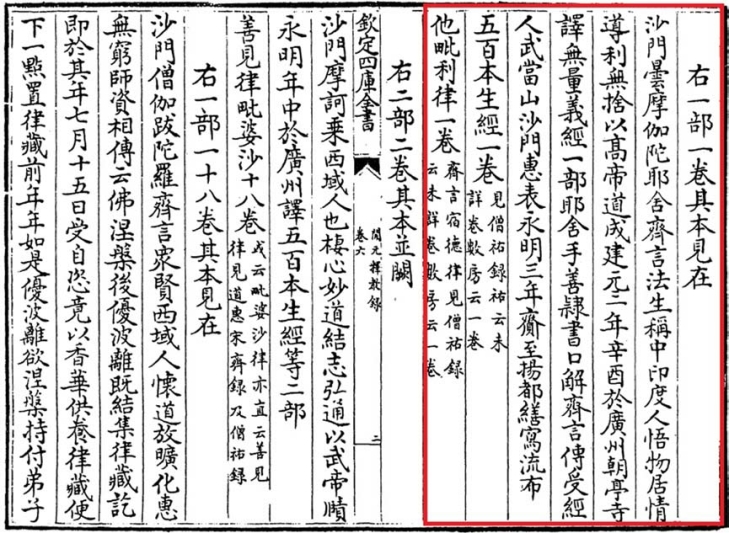 右一部一卷其本見在
沙門曇摩伽陀耶舍齊言法生稱中印度人悟物居情
導利無捨以髙帝道成建元二年辛酉於廣州朝亭寺
譯無量義經一部耶舍手善隸書口解齊言傳受經
人武當山沙門惠表永明三年齎至揚都繕寫流布
五百本生經一卷見僧祐録祐云未詳卷數房云一卷
他毗利律一卷齊言宿德律見僧祐録云未詳卷數房云一卷
右二部二卷其本並闕
欽定四庫全書
開元釋教録
卷六
二
沙門摩訶乗西域人也棲心妙道結志弘通以武帝賾
永明年中於廣州譯五百本生經等二部
善見律毗婆沙十八卷或云毗婆沙律亦直云善見律見道惠宋齊録及僧祐録
右一部一十八卷其本見在
沙門僧伽跋陀羅齊言衆賢西域人懐道放曠化惠
無窮師資相傳云佛湼槃後優波離既結集律藏訖
即於其年七月十五日受自恣竟以香華供養律藏便
下一點置律藏前年年如是優波離欲湼槃持付弟子